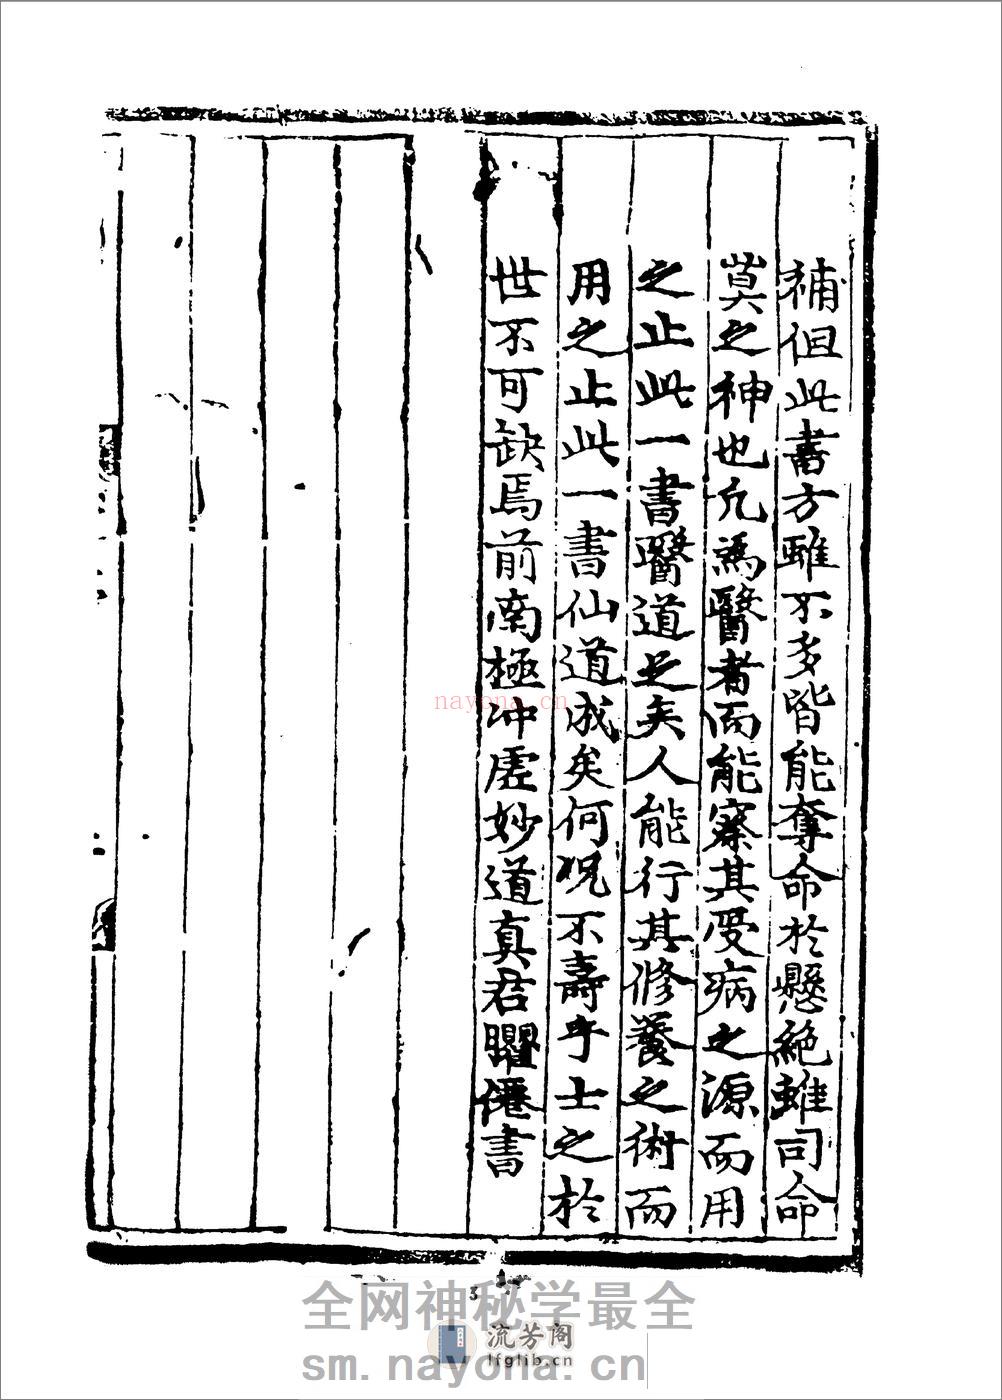 補但此書方雖不多皆能奪命於懸絶雖司命
莫之神也凢為醫者而能察其受病之源而用
之止此一書醫道足矣人能行其修養之術而
用之止此一書仙道成矣何況不壽乎士之於
世不可缺焉前南極冲虛妙道真君臞僊書
nayona.cn
3
全网神秘学最全
流芳阁
lfglib.cn
sm.nayona.cn